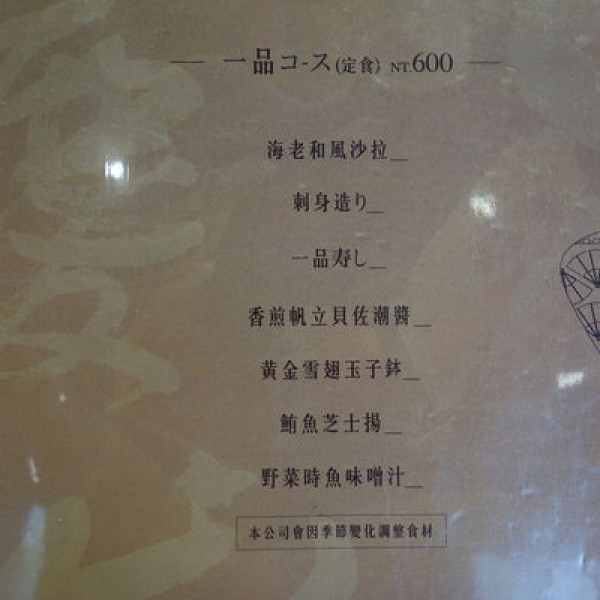 一品コース(定食) NT.600
海老和風沙拉
刺身造り
一品寿し
香煎帆立貝佐潮醬
黃金雪翅玉子鉢
鮪魚芝士揚
野菜時魚味噌汁
本公司會因季節變化調整食材